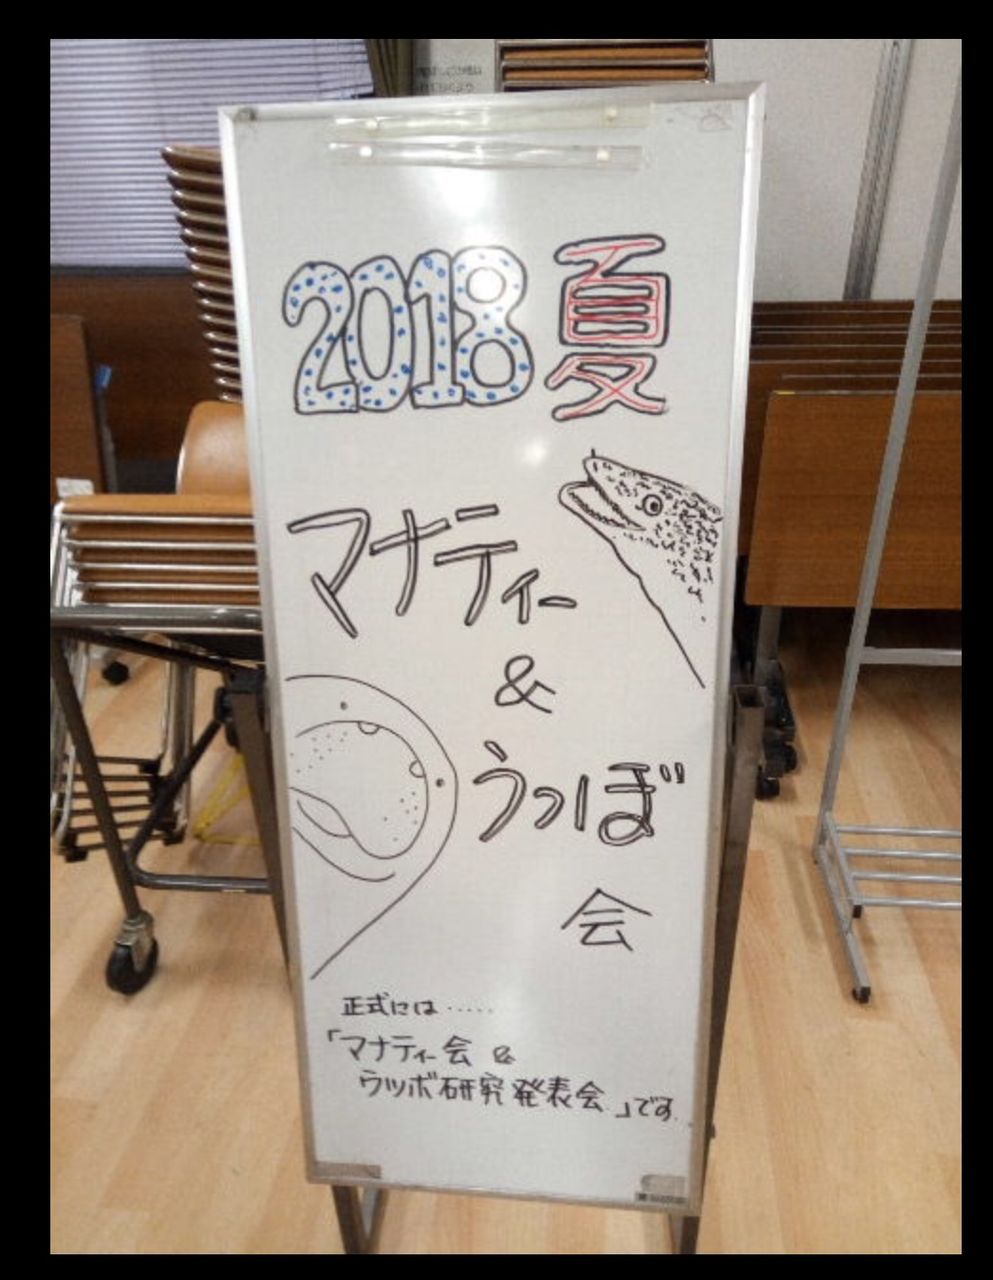 2018 夏
マナティー
&
うつぼ
会
正式には……
「マナティー会 &
ウツボ研究発表会」です